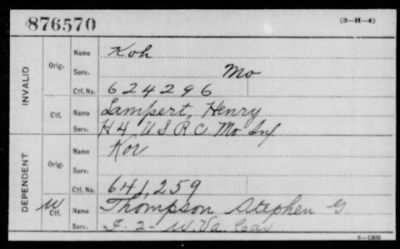 876570 (3-H-4)
INVALID
Orig. Name Koh
Serv. Mo
Ctf. No. 624296
Ctf. Name Lampert, Henry
Serv. H 4, U S R C Mo Inf
DEPENDENT
Orig. Name Kov
Serv.
Ctf. No. 641,259
W Ctf. Name Thompson Stephen G
Serv. I-2- W.Va. Cav